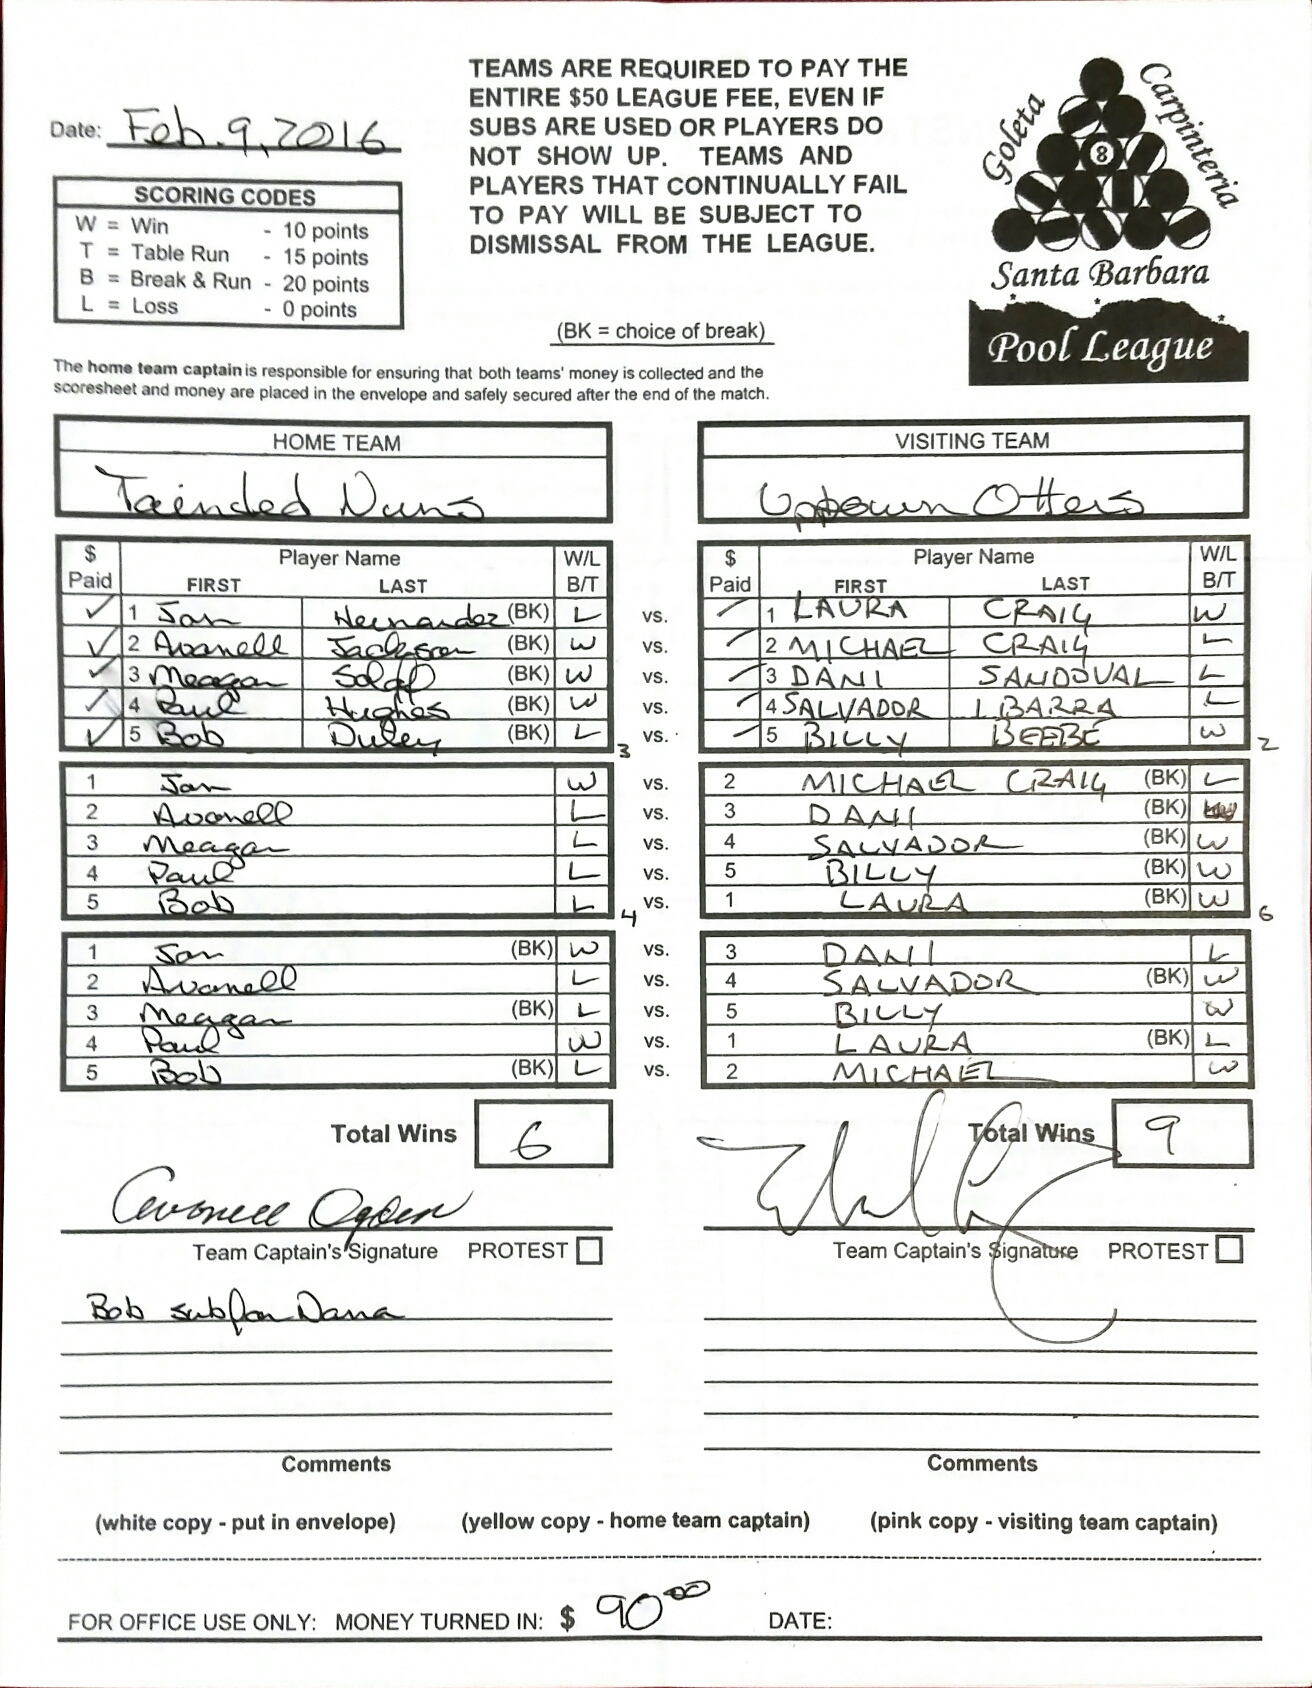 TEAMS ARE REQUIRED TO PAY THE
ENTIRE $50 LEAGUE FEE, EVEN IF
SUBS ARE USED OR PLAYERS DO
NOT SHOW UP. TEAMS AND
PLAYERS THAT CONTINUALLY FAIL
TO PAY WILL BE SUBJECT TO
DISMISSAL FROM THE LEAGUE.
Date: Feb. 9, 2016
SCORING CODES
W = Win - 10 points
T = Table Run - 15 points
B = Break & Run - 20 points
L = Loss - 0 points
(BK = choice of break)
Goleta
Carpinteria
8
Santa Barbara
Pool League
The home team captain is responsible for ensuring that both teams' money is collected and the
scoresheet and money are placed in the envelope and safely secured after the end of the match.
HOME TEAM VISITING TEAM
Tainded Nuns Uptown Otters
$ Paid Player Name FIRST LAST W/L B/T $ Paid Player Name FIRST LAST W/L B/T
✓ 1 Jan Hernandez (BK) L vs. 1 LAURA CRAIG W
✓ 2 Avanell Jackson (BK) W vs. 2 MICHAEL CRAIG L
✓ 3 Meagan (BK) W vs. 3 DANI SANDOVAL L
✓ 4 Paul Hughes (BK) W vs. 4 SALVADOR IBARRA L
✓ 5 Bob Duley (BK) L 3 vs. 5 BILLY BEEBE W 2
1 Jan W vs. 2 MICHAEL CRAIG (BK) L
2 Avanell L vs. 3 DANI (BK)
3 Meagan L vs. 4 SALVADOR (BK) W
4 Paul L vs. 5 BILLY (BK) W
5 Bob L 4 vs. 1 LAURA (BK) W 6
1 Jan (BK) W vs. 3 DANI L
2 Avanell L vs. 4 SALVADOR (BK) W
3 Meagan (BK) L vs. 5 BILLY W
4 Paul W vs. 1 LAURA (BK) L
5 Bob (BK) L vs. 2 MICHAEL W
Total Wins 6 Total Wins 9
Avonell Ogden
Team Captain's Signature PROTEST Team Captain's Signature PROTEST
Bob sub for Dana
Comments Comments
(white copy - put in envelope) (yellow copy - home team captain) (pink copy - visiting team captain)
FOR OFFICE USE ONLY: MONEY TURNED IN: $ 90.00 DATE: